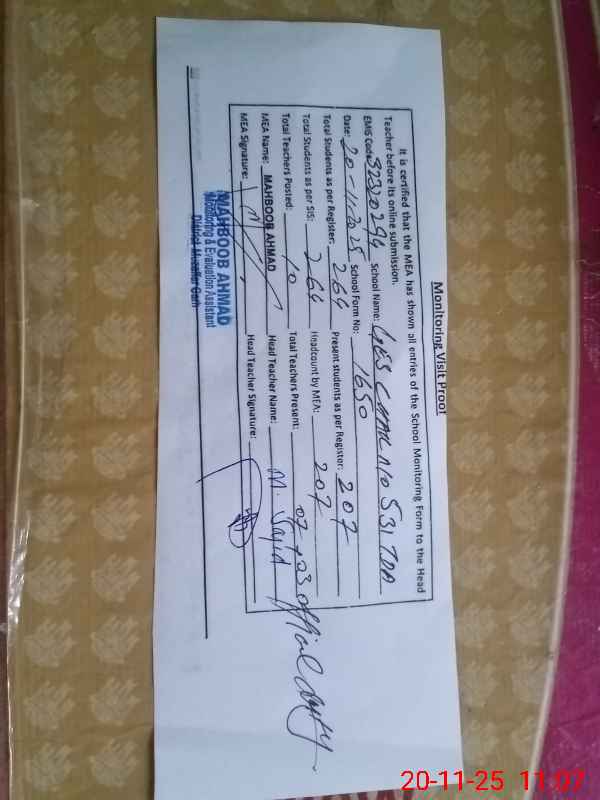 Monitoring Visit Proof
It is certified that the MEA has shown all entries of the School Monitoring Form to the Head
Teacher before its online submission.
EMIS Code: 32320294 School Name: GES CHAK NO 531 TDA
Date: 20-11-2025 School Form No: 1650
Total Students as per Register: 264 Present students as per Register: 207
Total Students as per SIS: 264 Headcount by MEA: 207
Total Teachers Posted: 10 Total Teachers Present: 07 + 03 official duty
MEA Name: MAHBOOB AHMAD Head Teacher Name: M. Sajid
MEA Signature: Head Teacher Signature:
MAHBOOB AHMAD
Monitoring & Evaluation Assistant
District Muzaffar Garh
20-11-25 11:07